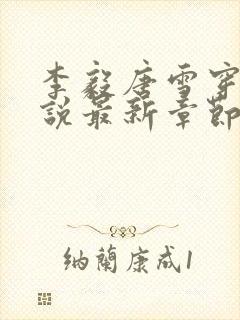 李毅唐雪穿
說最新章節
納蘭康成1